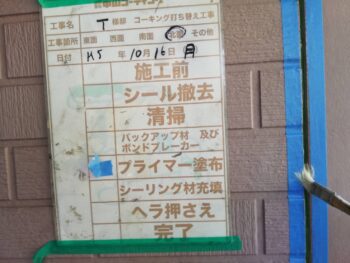 工事名 T様邸 コーキング打ち替え工事
工事箇所 東面 西面 南面 北面 その他
日付 H5 年10月16日 月
施工前
シール撤去
清掃
バックアップ材 及び
ボンドブレーカー
プライマー塗布
シーリング材充填
ヘラ押さえ
完了